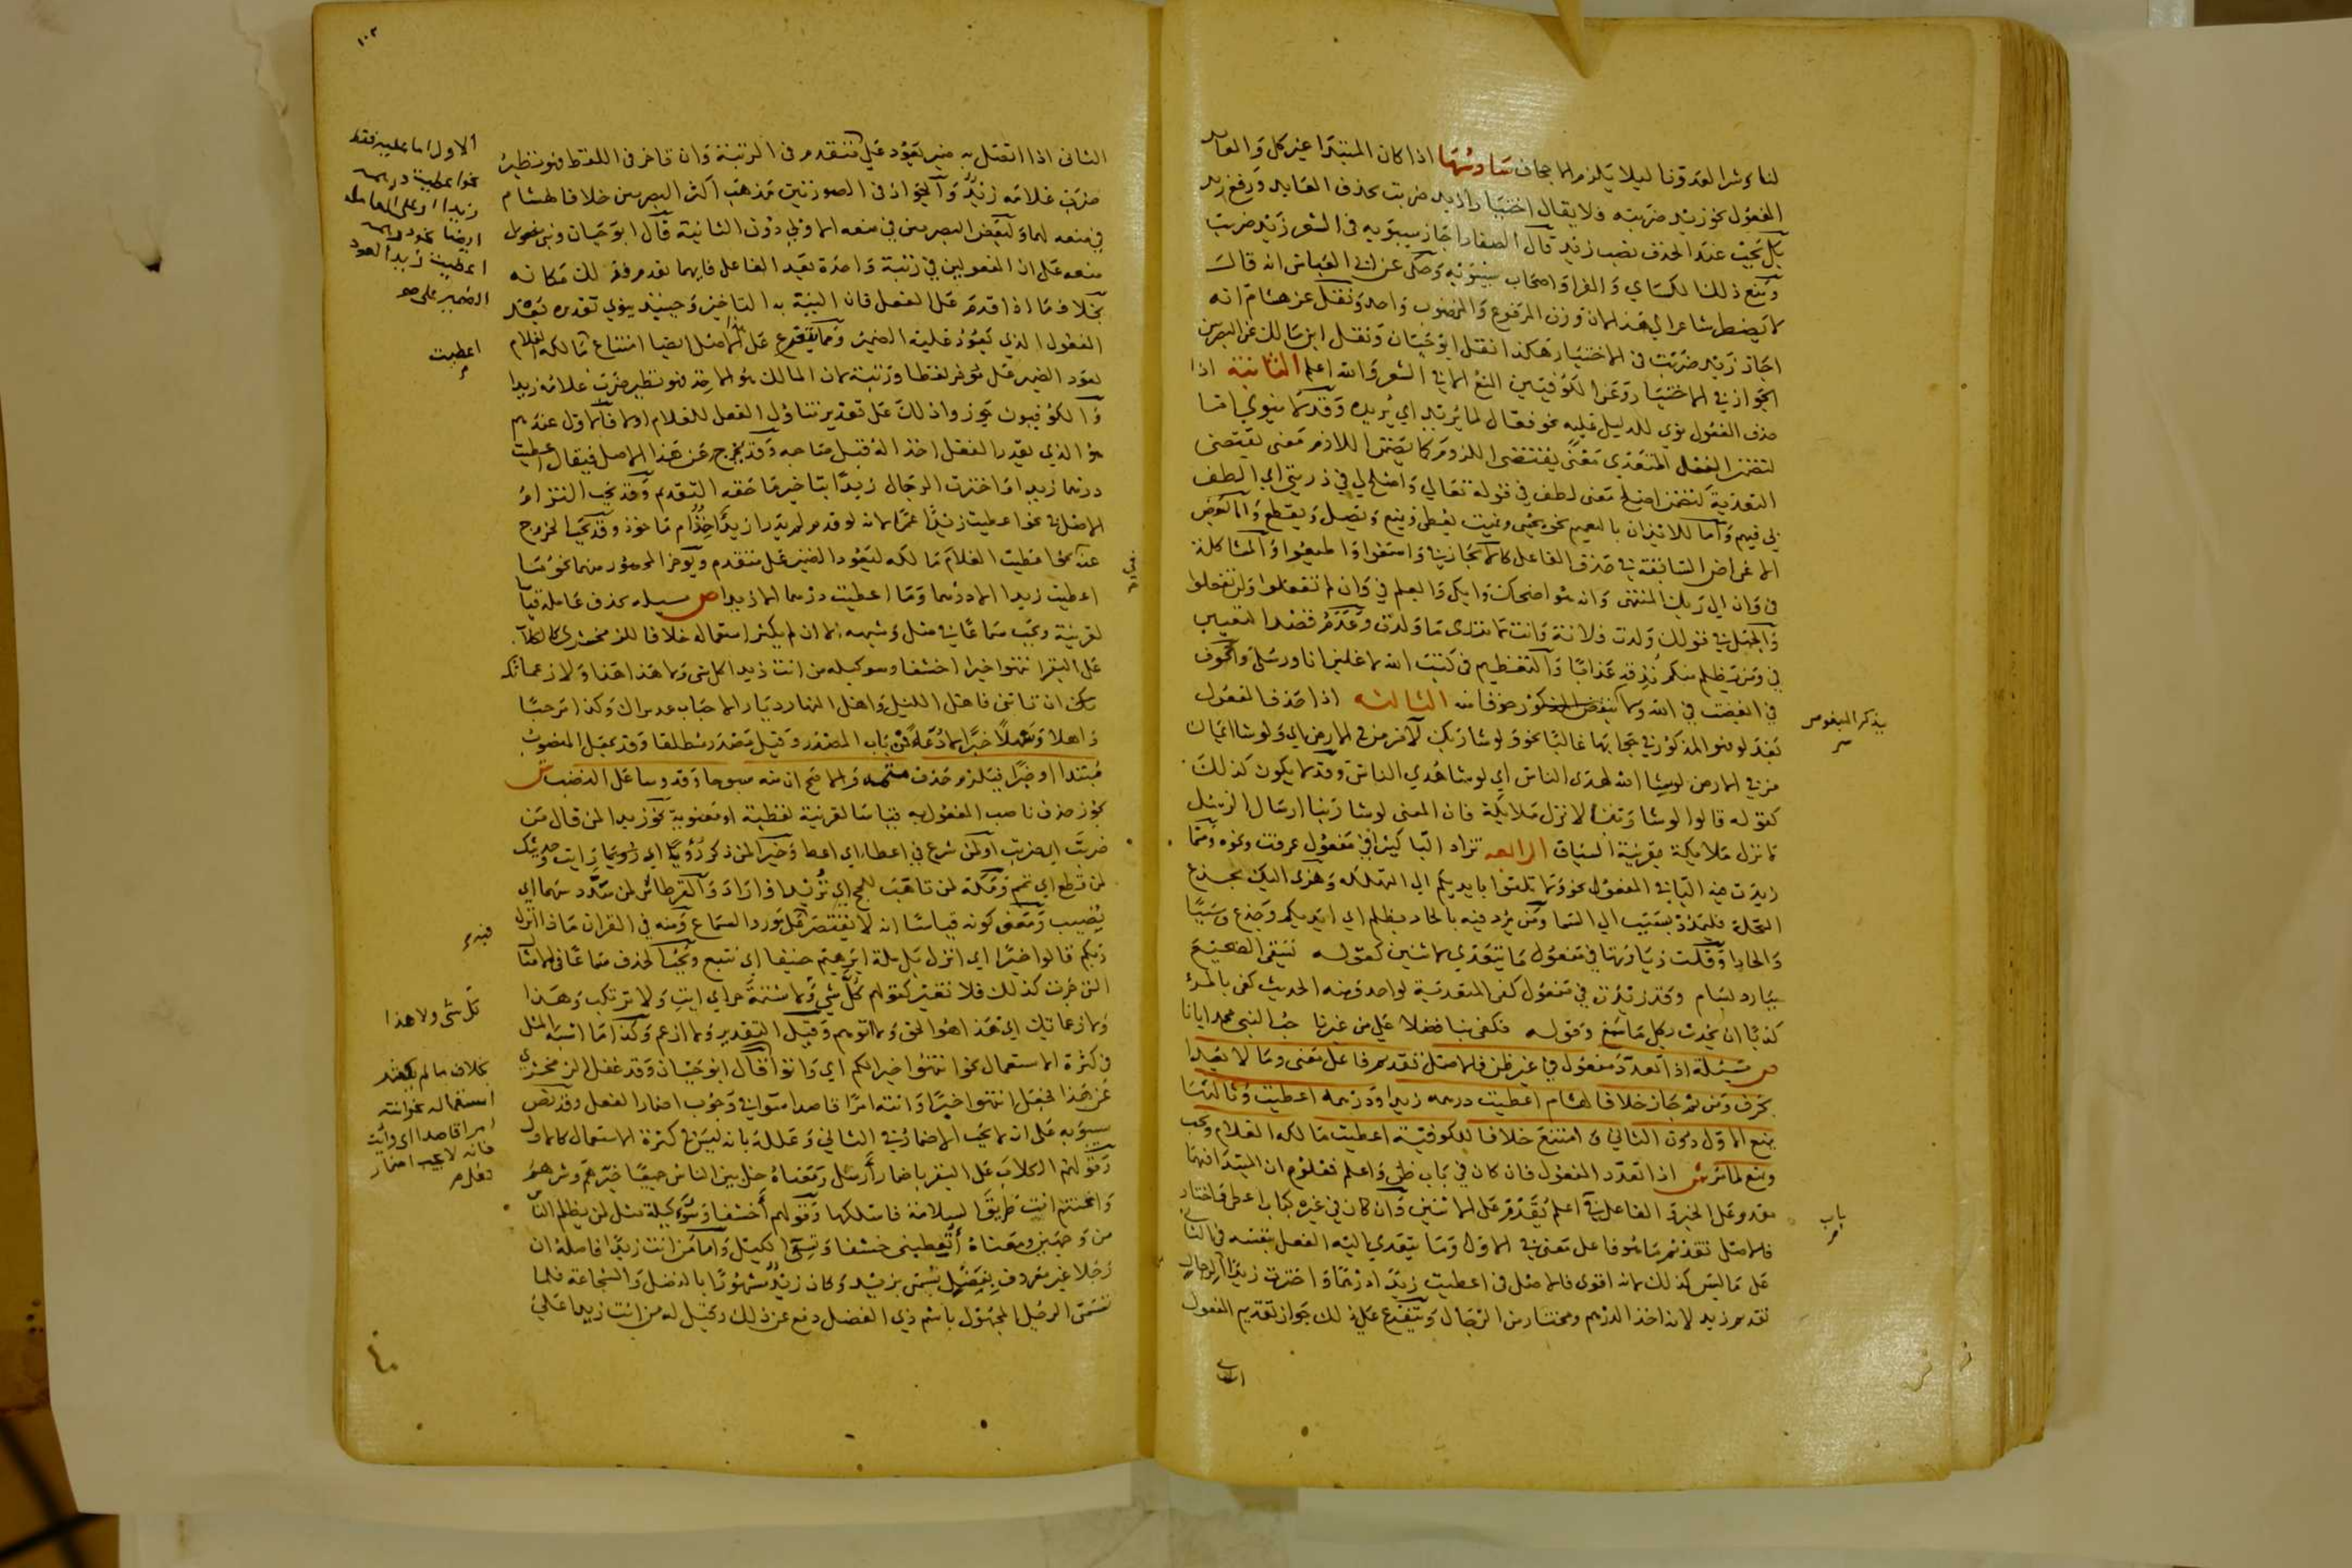 لناء شرا لعدونا ليلا يلزم الاجحاف سادسها اذا كان المبتدا غير كل والعايد
المفعول نحو زيد ضربته فلا يقال اختيارا زيد ضربت بحذف العايد ورفع زيد
بل يجب عند الحذف نصب زيد قال الصفار اجاز سيبويه في الشعر زيد ضربت
ومنع ذلك الكساي والفرا واصحاب سيبويه وحكى عن ابي العباس انه قال
لا يضطر شاعر الى هذا لان وزن المرفوع والمنصوب واحد ونقل عن هشام انه
اجاز زيد ضربت في الاختيار هكذا نقل ابو حيان ونقل ابن مالك عن البصريين
الجواز في الاختيار وعن الكوفيين المنع الا في الشعر والله اعلم الثانية اذا
حذف المفعول نوي للدليل عليه نحو فعال لما يريد اي يريده وقد لا ينوي اما
لتضمن الفعل المتعدى معنى يقتضي اللزوم كما يضمن اللازم معنى يقتضى
التعدية لتضمن اصلح معنى لطف في قوله تعالى واصلح لي في ذريتي اي الطف
لي فيهم واما للايذان بالتعميم نحو يحيى ويميت يعطي ويمنع ويصل ويقطع واما لبعض
الاغراض السابقة في حذف الفاعل كالايجاز في واسمعوا واطيعوا والمشاكلة
في وان الى ربك المنتهى وانه هو اضحك وابكى والعلم في فان لم تفعلوا ولن تفعلوا
والجهل في قولك ولدت فلانة وانت لا تدرى ما ولدت وعدم قصد التعيين
في ومن يظلم منكم نذقه عذابا والتعظيم في كتب الله لاغلبن انا ورسلي والخوف
في ابغضت في الله ولا تبغض المذكور خوفا منه الثالثة اذا حذف المفعول
بعد لو فهو المذكور في جوابها غالبا نحو ولو شا ربك لآمن من في الارض اي ولو شا ايمان
من في الارض لو يشا الله لهدى الناس اي لو شا هدي الناس وقد لا يكون كذلك
كقوله قالوا لو شا ربنا لانزل ملايكة فان المعنى لو شا ربنا ارسال الرسل
لانزل ملايكة بقرينة السياق الرابعة تزاد البا كثيرا في مفعول عرفت ونحوه ومما
زيدت فيه البا في المفعول نحو ولا تلقوا بايديكم الى التهلكه وهزى اليك بجذع
النخلة فليمدد بسبب الى السما ومن يرد فيه بالحاد بظلم اي ايديكم وجذع وسببا
والحادا وقلت زيادتها في مفعول ما يتعدي لاثنين كقوله تسقى الضجيع
ببارد بسام وقد زيدت في مفعول كفى المتعدية لواحد ومنه الحديث كفى بالمرء
كذبا ان يحدث بكل ما سمع وقوله فكفى بنا فضلا على من غيرنا حب النبي محمد ايانا
ص مسيلة اذا تعدد مفعول في غير ظن فالاصل تقديم فاعل معنى وما لا يعدا
بحرف ومن ثم جاز خلافا لهشام اعطيت درهمه زيدا ودرهمه اعطيت وثالثها
يمنع الاول دون الثاني وامتنع خلافا للكوفية اعطيت مالكه الغلام ويجب
ويمنع لما مر ش اذا تعدد المفعول فان كان في باب ظن واعلم فمعلوم ان المبتدا فيهما
مقدم على الخبر والفاعل في اعلم يقدم على الاثنين وان كان في غيره كباب اعطى واختار
فالاصل تقديم ما هو فاعل معنى في الاول وما يتعدي اليه الفعل بنفسه في الثاني
على ما ليس كذلك لانه اقوى فالاصل في اعطيت زيدا درهما واخترت زيدا الرجال
تقديم زيد لانه اخذ الدرهم ومختار من الرجال ويتفرع على ذلك جواز تقديم المفعول
يذكر المبغوض
باب
الثاني
١٠٢
الثانى اذا اتصل به ضمير يعود على متقدم في الرتبة وان تاخر في اللفظ فهو نظير
ضرب غلامه زيد والجواز في الصورتين مذهب اكثر البصريين خلافا لهشام
في منعه لهما ولبعض البصريين في منعه الاولى دون الثانية قال ابو حيان وبنى
منعه على ان المفعولين في رتبة واحدة بعد الفاعل فايهما تقدم فذلك مكانه
بخلاف ما اذا قدم على الفعل فان النية به التاخير وحينيذ ينوي تقديره بعد
المفعول الذي يعود عليه الضمير ومما يتفرع على الاصل ايضا امتناع مالكه الغلام
لعود الضمير على مؤخر لفظا ورتبة لان المالك هو الاخذ فهو نظير ضرب غلامه زيدا
والكوفيون يجوزوا ذلك على تقدير تناول الفعل للغلام اولا فالاول عندهم
هو الذي يقدر الفعل اخذا له قبل صاحبه وقد يخرج عن هذا الاصل فيقال اعطيت
درهما زيدا واخترت الرجال زيدا بتاخير ما حقه التقديم وقد يجب التزام
الاصل في نحو اعطيت زيدا عمرا لانه لو قدم لم يدر ازيد اخذ ام ماخوذ وقد يجب الخروج
عنه نحو اعطيت الغلام مالكه ليعود الضمير على متقدم ويؤخر المحصور منهما نحو ما
اعطيت زيدا الا درهما وما اعطيت درهما الا زيدا ص مسيلة يحذف عامله قياسا
لقرينة ويجب سماعا في مثل وشبهه لا ان لم يكثر استعماله خلافا للزمخشرى كالكلاب
على البقر انتهوا خيرا احشفا وسو كيله من انت زيدا كل شى ولا هذا هذا ولا زعماتك
ان تاتني فاهل الليل واهل النهار ديار الاحباب عذيرك وكذا مرحبا
واهلا وسهلا خبرا لا دعاء من باب المصدر وقيل مصدر مطلقا وقد يجعل المنصوب
مبتدا او خبرا فيلزم حذف متممه والاصح ان منه سبوحا وقدوسا على النصب ش
يجوز حذف ناصب المفعول به قياسا لقرينة لفظية او معنوية نحو زيدا لمن قال من
ضربت اي ضربت او لمن شرع في اعطاء اي اعط وخيرا لمن ذكر رؤيا اي رايت وحديثك
لمن قطع اي تمم ومكة لمن تاهب للحج اي تريد او اراد والقرطاس لمن سدد سهما اي
يصيب ومعنى كونه قياسا انه لا يقتصر على مورد السماع ومنه في القران ماذا انزل
ربكم قالوا خيرا اي انزل بل ملة ابرهيم حنيفا اي نتبع ويجب الحذف سماعا في الامثال
التي جرت كذلك فلا تغير كقولهم كل شي ولا شتيمة حر اي ايت ولا ترتكب وهذا
ولا زعماتك اي هذا هو الحق ولا اتوهم وقيل التقدير ولا ازعم وكذا ما اشبه المثل
في كثرة الاستعمال نحو انتهوا خيرا لكم اي واتوا قال ابو حيان وقد غفل الزمخشري
عن هذا فجعل انتهوا خيرا وانته امرا قاصدا سوا في وجوب اضمار الفعل وقد نص
سيبويه على ان لا يجب الاضمار في الثاني وعلله بانه ليس في كثرة الاستعمال كالاول
وقولهم الكلاب على البقر باضمار ارسل ومعناه خل بين الناس جميعا خيرهم وشرهم
واغتنم انت طريق السلامة فاسلكها وقولهم أحشفا وسوء كيلة مثل لمن يظلم الناس
من وجهين ومعناه أتعطيني حشفا وتسئ الكيل واما من انت زيدا فاصله ان
رجلا غير معروف بفضل تسمى بزيد وكان زيد مشهورا بالفضل والشجاعة فلما
تسمى الرجل المجهول باسم ذي الفضل دفع عن ذلك وقيل له من انت زيدا على
الاول اما عليه فقد
نحو اعطيت درهمه
زيدا او على العامل
ايضا نحو درهمه
اعطيت زيدا لعود
الضمير على
اعطيت
كل شى ولا هذا
بخلاف ما لم يكثر
استعماله نحو انته
امرا قاصدا اي وأت
فانه لا يجب اضمار
فعله